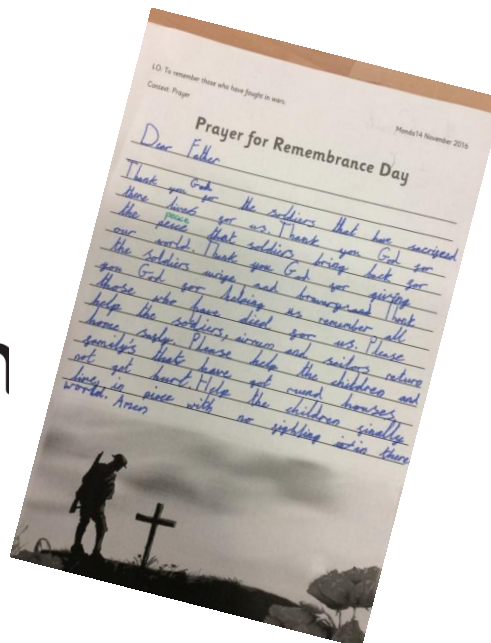 L.O. To remember those who have fought in wars.
Context: Prayer
Monda14 November 2016
Prayer for Remembrance Day
Dear Father
Thank you God for the soldiers that have sacrifesed
there lives for us. Thank you God for
peace
the peice that soldiers bring back for
our world. Thank you God for giving
the soldiers and Thank
you God for helping us remember all
those who have died for us. Please
help the soldiers, airmen and sailors return
home safly. Please help the children and
family's that have got ruind houses
not get hurt. Help the children finally
live in piece with no fighting in there
world. Amen